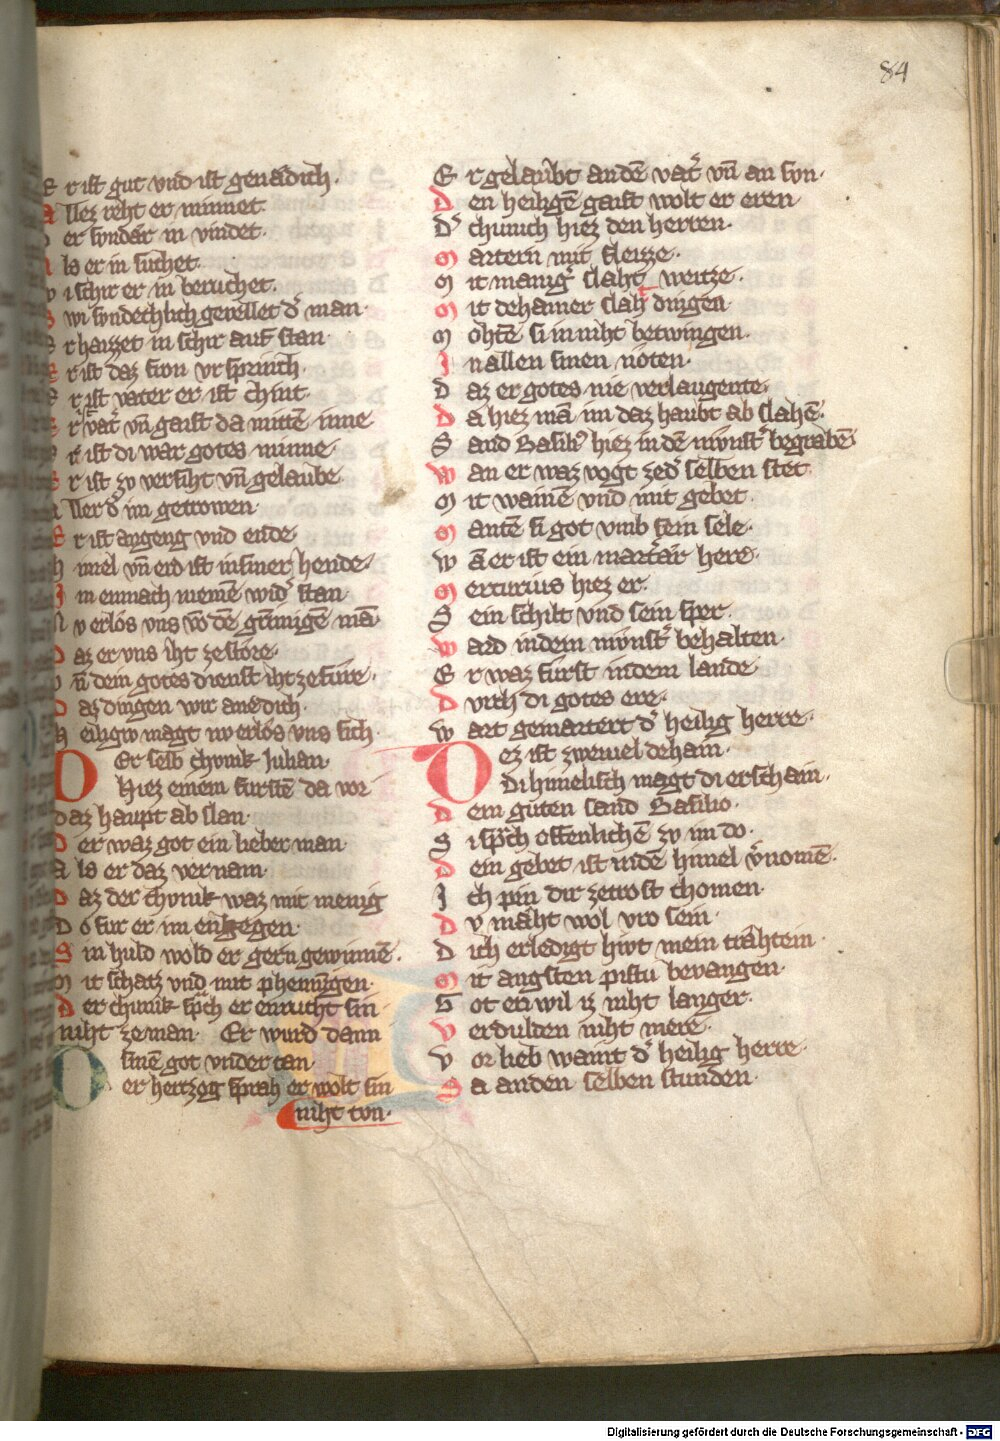 84
E r ist gut vnd ist genadich·
A llez reht er minnet·
er sunder in vindet·
A ls er in suchet
w i schir er in beruchet·
S wi sundechlich gevellet d͛ man
E r haizzet in schir auf stan·
E r ist daz sion vrsprinch·
E r ist vater er ist chint·
E r ist vat͛ vn̄ gaist da mittē inne
E r ist di war gotes minne·
E r ist zv versiht vn̄ gelaube·
A ller d͛ im getrowen·
E r ist angeng vnd ende·
H imel vn̄ erd ist in siner hende·
I m enmach niemē wid͛ stan·
N v erlos vns vō dē grīmigē mā·
D az er vns iht zestore·
v n̄ dein gotes dienst iht zefure·
D az dingen wir anedich·
H eiligiv magt nv erlos vns sich·
D Er selb chvnik Julian·
Hiez einem furstē da vor
daz haupt ab slan·
D er waz got ein lieber man·
A ls er daz vernam·
D az der chvnik waz mit menig
D o fur er im engegen·
S in huld wold er gern gewinnē·
M it schatz vnd mit phenningen·
D er chunik sp͛ch er enrucht sin
niht ze man· Er wurd dann
D sinē got vnder tan·
er hertzog sprah er wolt sin
niht tvn·
E r gelaubt an dē vat͛ vn̄ an svn·
D en heiligē gaist wolt er eren·
D͛ chunich hiez den herren·
M artern mit fleizze·
M it manig͛ slaht weitze·
M it dehainer slah dingen·
M ohtē si in niht betwingen·
I n allen sinen nöten·
D az er gotes nie verlaugente·
D a hiez mā im daz haubt ab slahē·
S and Basili͛ hiez in dē mvnst͛ begrabē
W an er waz vogt zed͛ selben stet·
M it wainē vnd mit gebet·
M antē si got vmb sein sele·
W ā er ist ein mart͛ar here·
M ercurius hiez er·
S ein schilt vnd sein sper·
W ard in dem mvnst͛ behalten·
E r waz furst in dem lande·
D vrch di gotes ere·
W art gemartert d͛ heilig herre·
D ez ist zweiuel dehain·
Di himelisch magt di erschain·
D em guten sand Basilio·
S i sp͛ch offenlichē zv im do·
D ein gebet ist in dē himel v͛nomē·
I ch pin dir zetrost chomen·
D v maht wol vro sein·
D ich erledigt hivt mein trähtein·
M it angsten pistu bevangen·
G ot en wil iz niht langer·
V erdulden niht mere·
V or lieb waint d͛ heilig herre·
S a an den selben stunden·
Digitalisierung gefördert durch die Deutsche Forschungsgemeinschaft - DFG